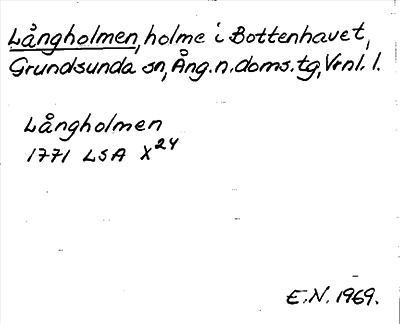 Långholmen, holme i Bottenhavet,
Grundsunda sn, Ång. n. doms. tg, Vrnl. l.
Långholmen
1771 LSA X24
E.N. 1969.